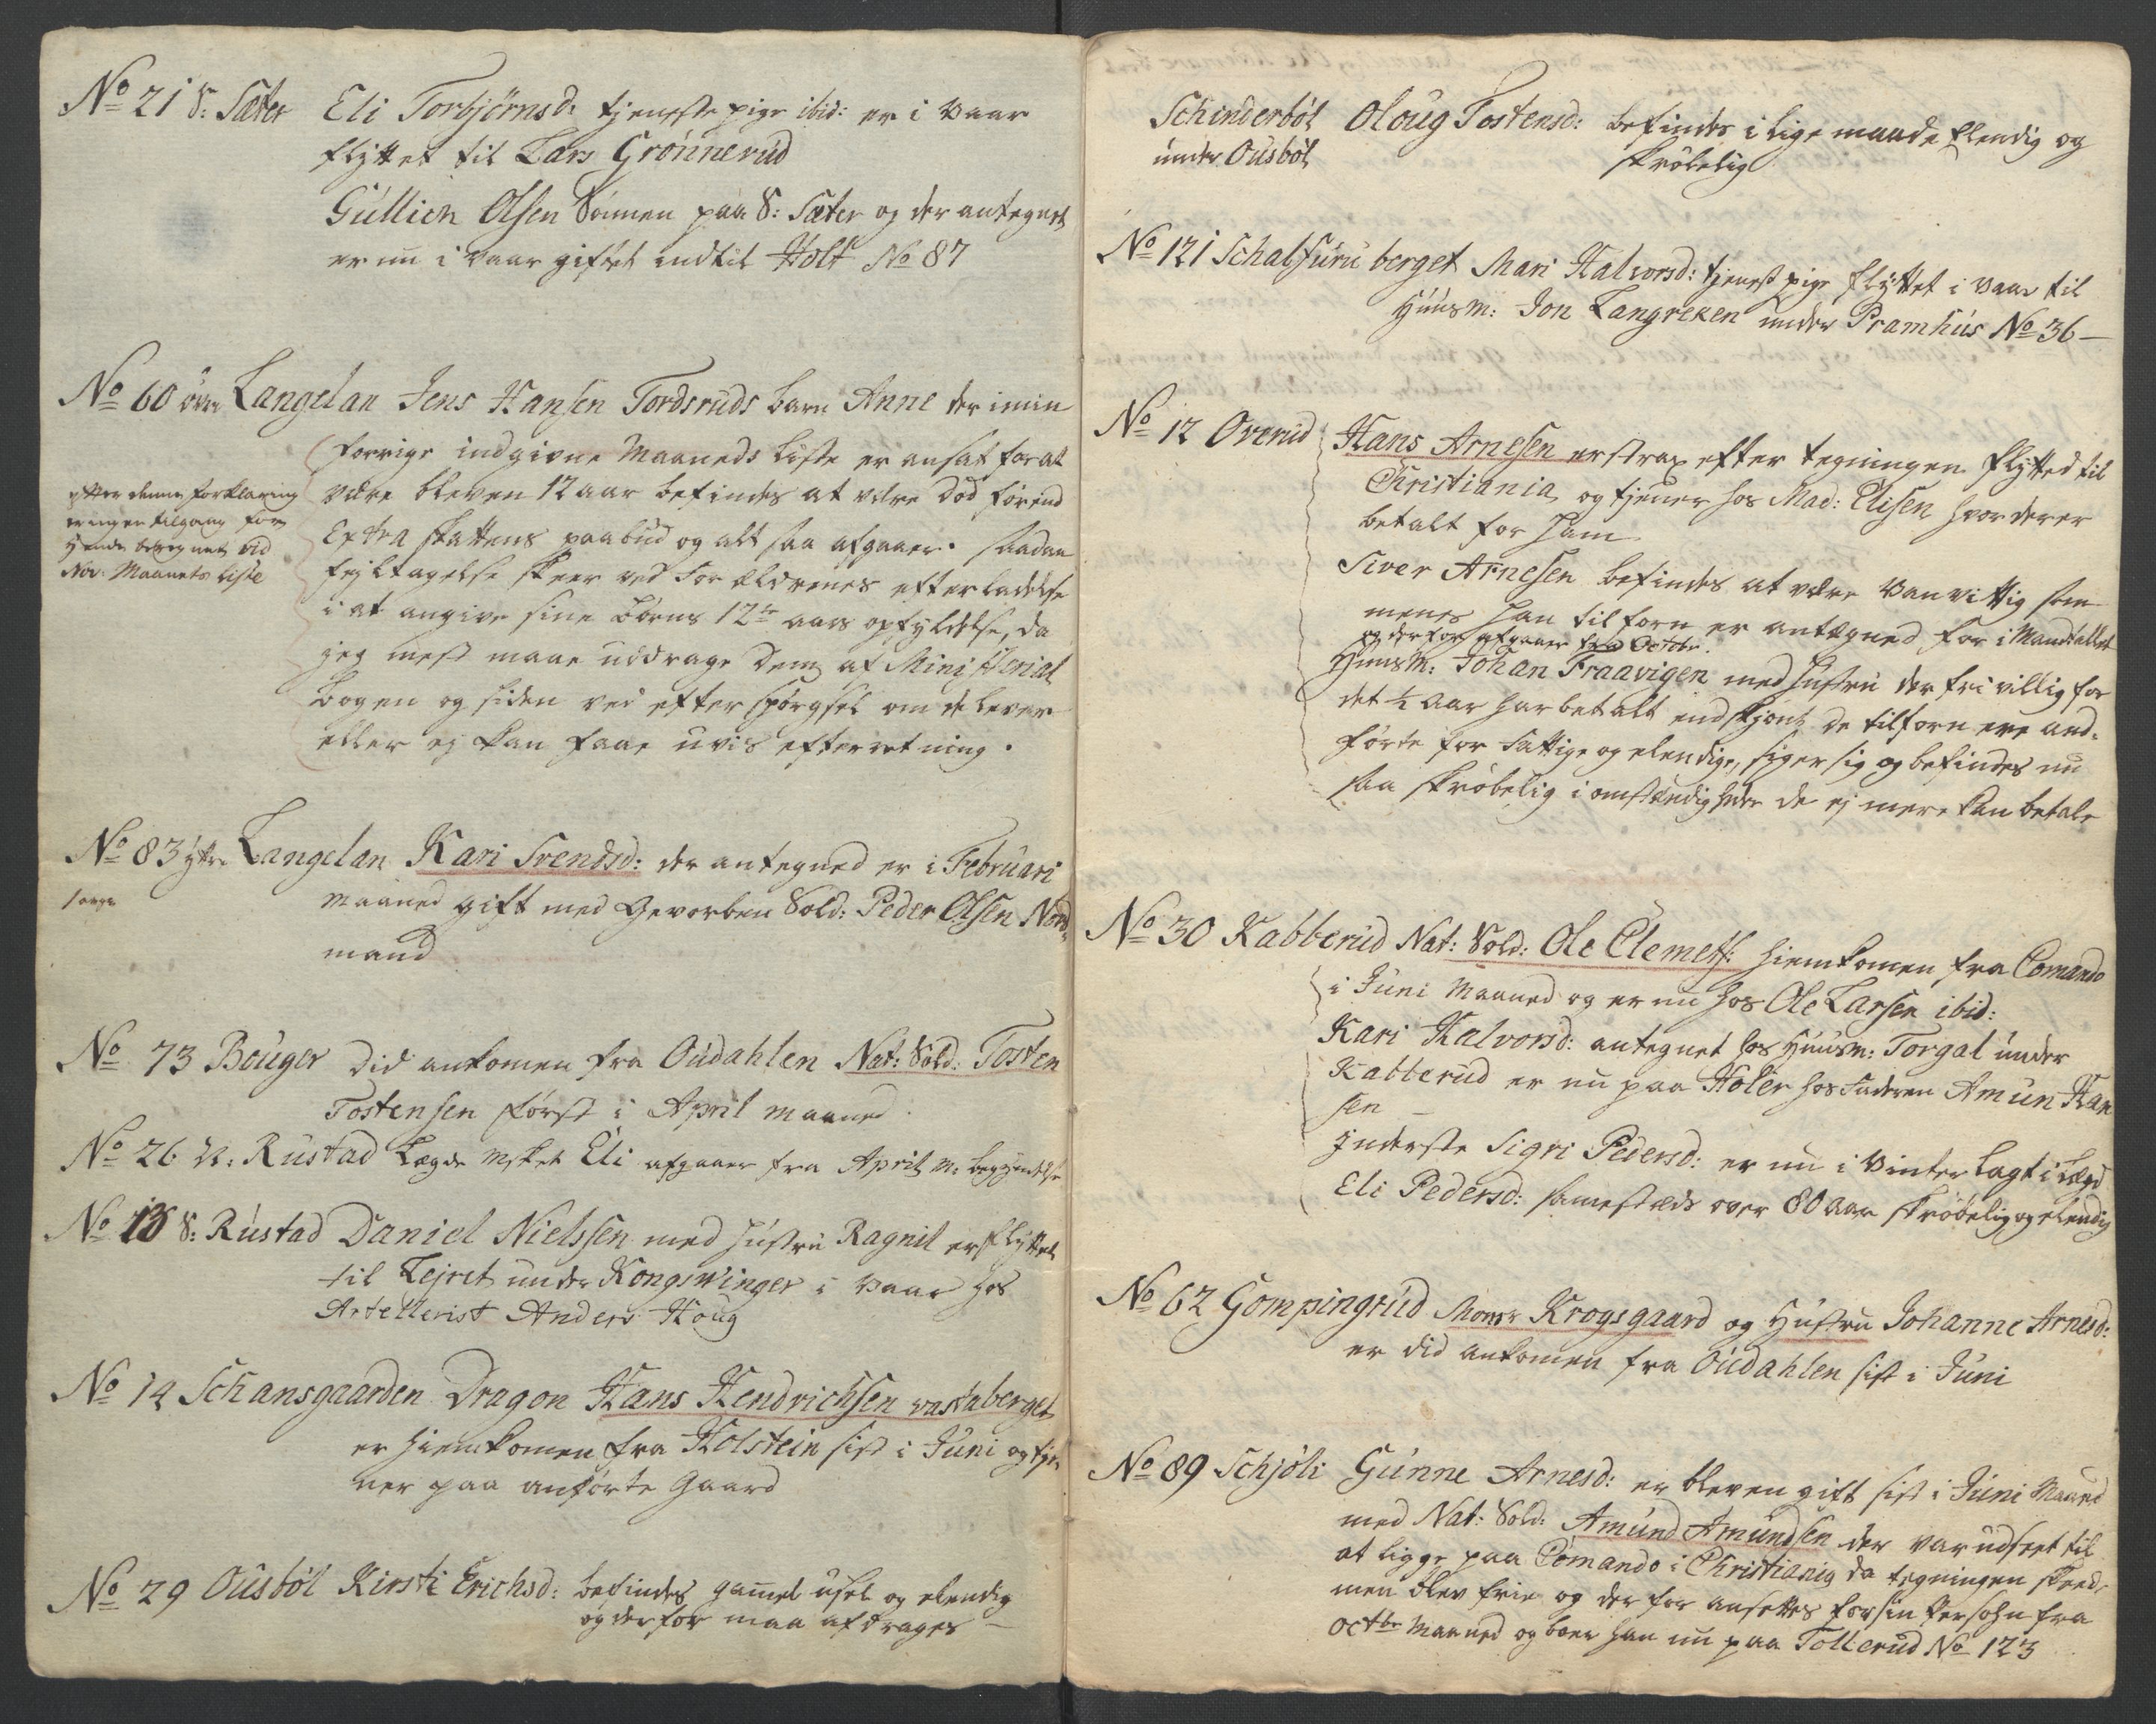 No 21 S: Sæter Eli Torbjörnsd: tjenestepige ibid: er i Vaar
flyttet til Lars Grönnerud
Gullich Olsen Sönnen paa S: Sæter og der antegnet
er nu i Vaar giftet indtil Holt No 87
No 60 övre Langelan Jens Hansen Tordsruds barn Anne der i min
forrige indgivne Maaneds Liste er ansat for at
være bleven 12 aar befindes at være död förend
Extra skattens paabud og alt saa afgaaer. saadan
fejltagelse skeer ved Forældrenes efterladelse
i at angive sine börns 12te aars opfyldelse, da
jeg mest maae uddrage dem af Ministerial
bogen og siden ved efterspörgsel om de lever
eller ej kan faae uvis efterretning.
efter denne forklaring
er ingen tilgang for
hende beregnet ved
Nov: Maanets liste
No 83 yttre Langelan Kari Svendsd: der antegned er i Februari
maaned gift med Gevorben Sold: Peder Olsen Nord-
mand
No 73 Bouger did ankomen fra Oudahlen Nat: Sold: Tosten
Tostensen först i April maaned.
No 26 N: Rustad Lægde Eli afgaaer fra April M: begyndelse
No 13 S: Rustad Daniel Nielssen med hustru Ragnil er flyttet
til Lejret under Kongswinger i Vaar hos
Artellerist Anders Houg
No 14 Schansgaarden Dragon Hans Hendrichsen vastaberget
er hiemkomen fra Holstein sist i Juni og tje-
ner paa anförte Gaard
No 29 Ousböl Kirsti Erichsd: befindes gamel usel og elendig
og derfor maa afdrages
Schinderböl Oloug Tostensd: befindes i lige maade Elendig og
under Ousböl skröbelig
No 121 Schalfuruberget Mari Halvorsd: tjenestpige flyttet i Vaar til
Huusm: Jon Langreken under Pramhus No 36
No 12 Overud Hans Arnesen er strax efter tegningen flytted til
Christiania og tjener hos Mad: Elisen hvor der er
betalt for ham
Siver Arnesen befindes at være Vanvittig som
menes han tilforn er antegned for i Mandtallet
og derfor afgaaer fra Octobr.
Huusm: Johan Fraavigen med hustru der frivillig for
det 1/2 Aar har betalt endskjönt de tilforn ere and-
förte for Fattige og elendige, siger sig og befindes nu
saa skröbelig i omstændigheder de ej mere kan betale
No 30 Kabberud Nat: Sold: Ole Clemets: hiemkomen fra Comando
i Juni Maaned og er nu hos Ole Larsen ibid:
Kari Halvorsd: antegnet hos Huusm: Torgal under
Kabberud er nu paa Holer hos Faderen Amun Han
sen
Inderste Sigri Pedersd: er nu i Vinter lagt i Lægd
Eli Pedersd: samestæds over 80 Aar skröbelig og elendig
No 62 Gompingrud Monsr Krogsgaard og Hustru Johanne Arnesd:
er did ankomen fra Oudahlen sist i Juni
No 89 Schjöli Gunne Arnesd: er bleven gift sist i Juni Maaned
med Nat: Sold: Amund Amundsen der var udseet til
at ligge paa Comando i Christiania da tegningen skeede
men blev frie og der for ansættes for sin Persohn fra
Octbr Maaned og boer han nu paa Tollerud No 123